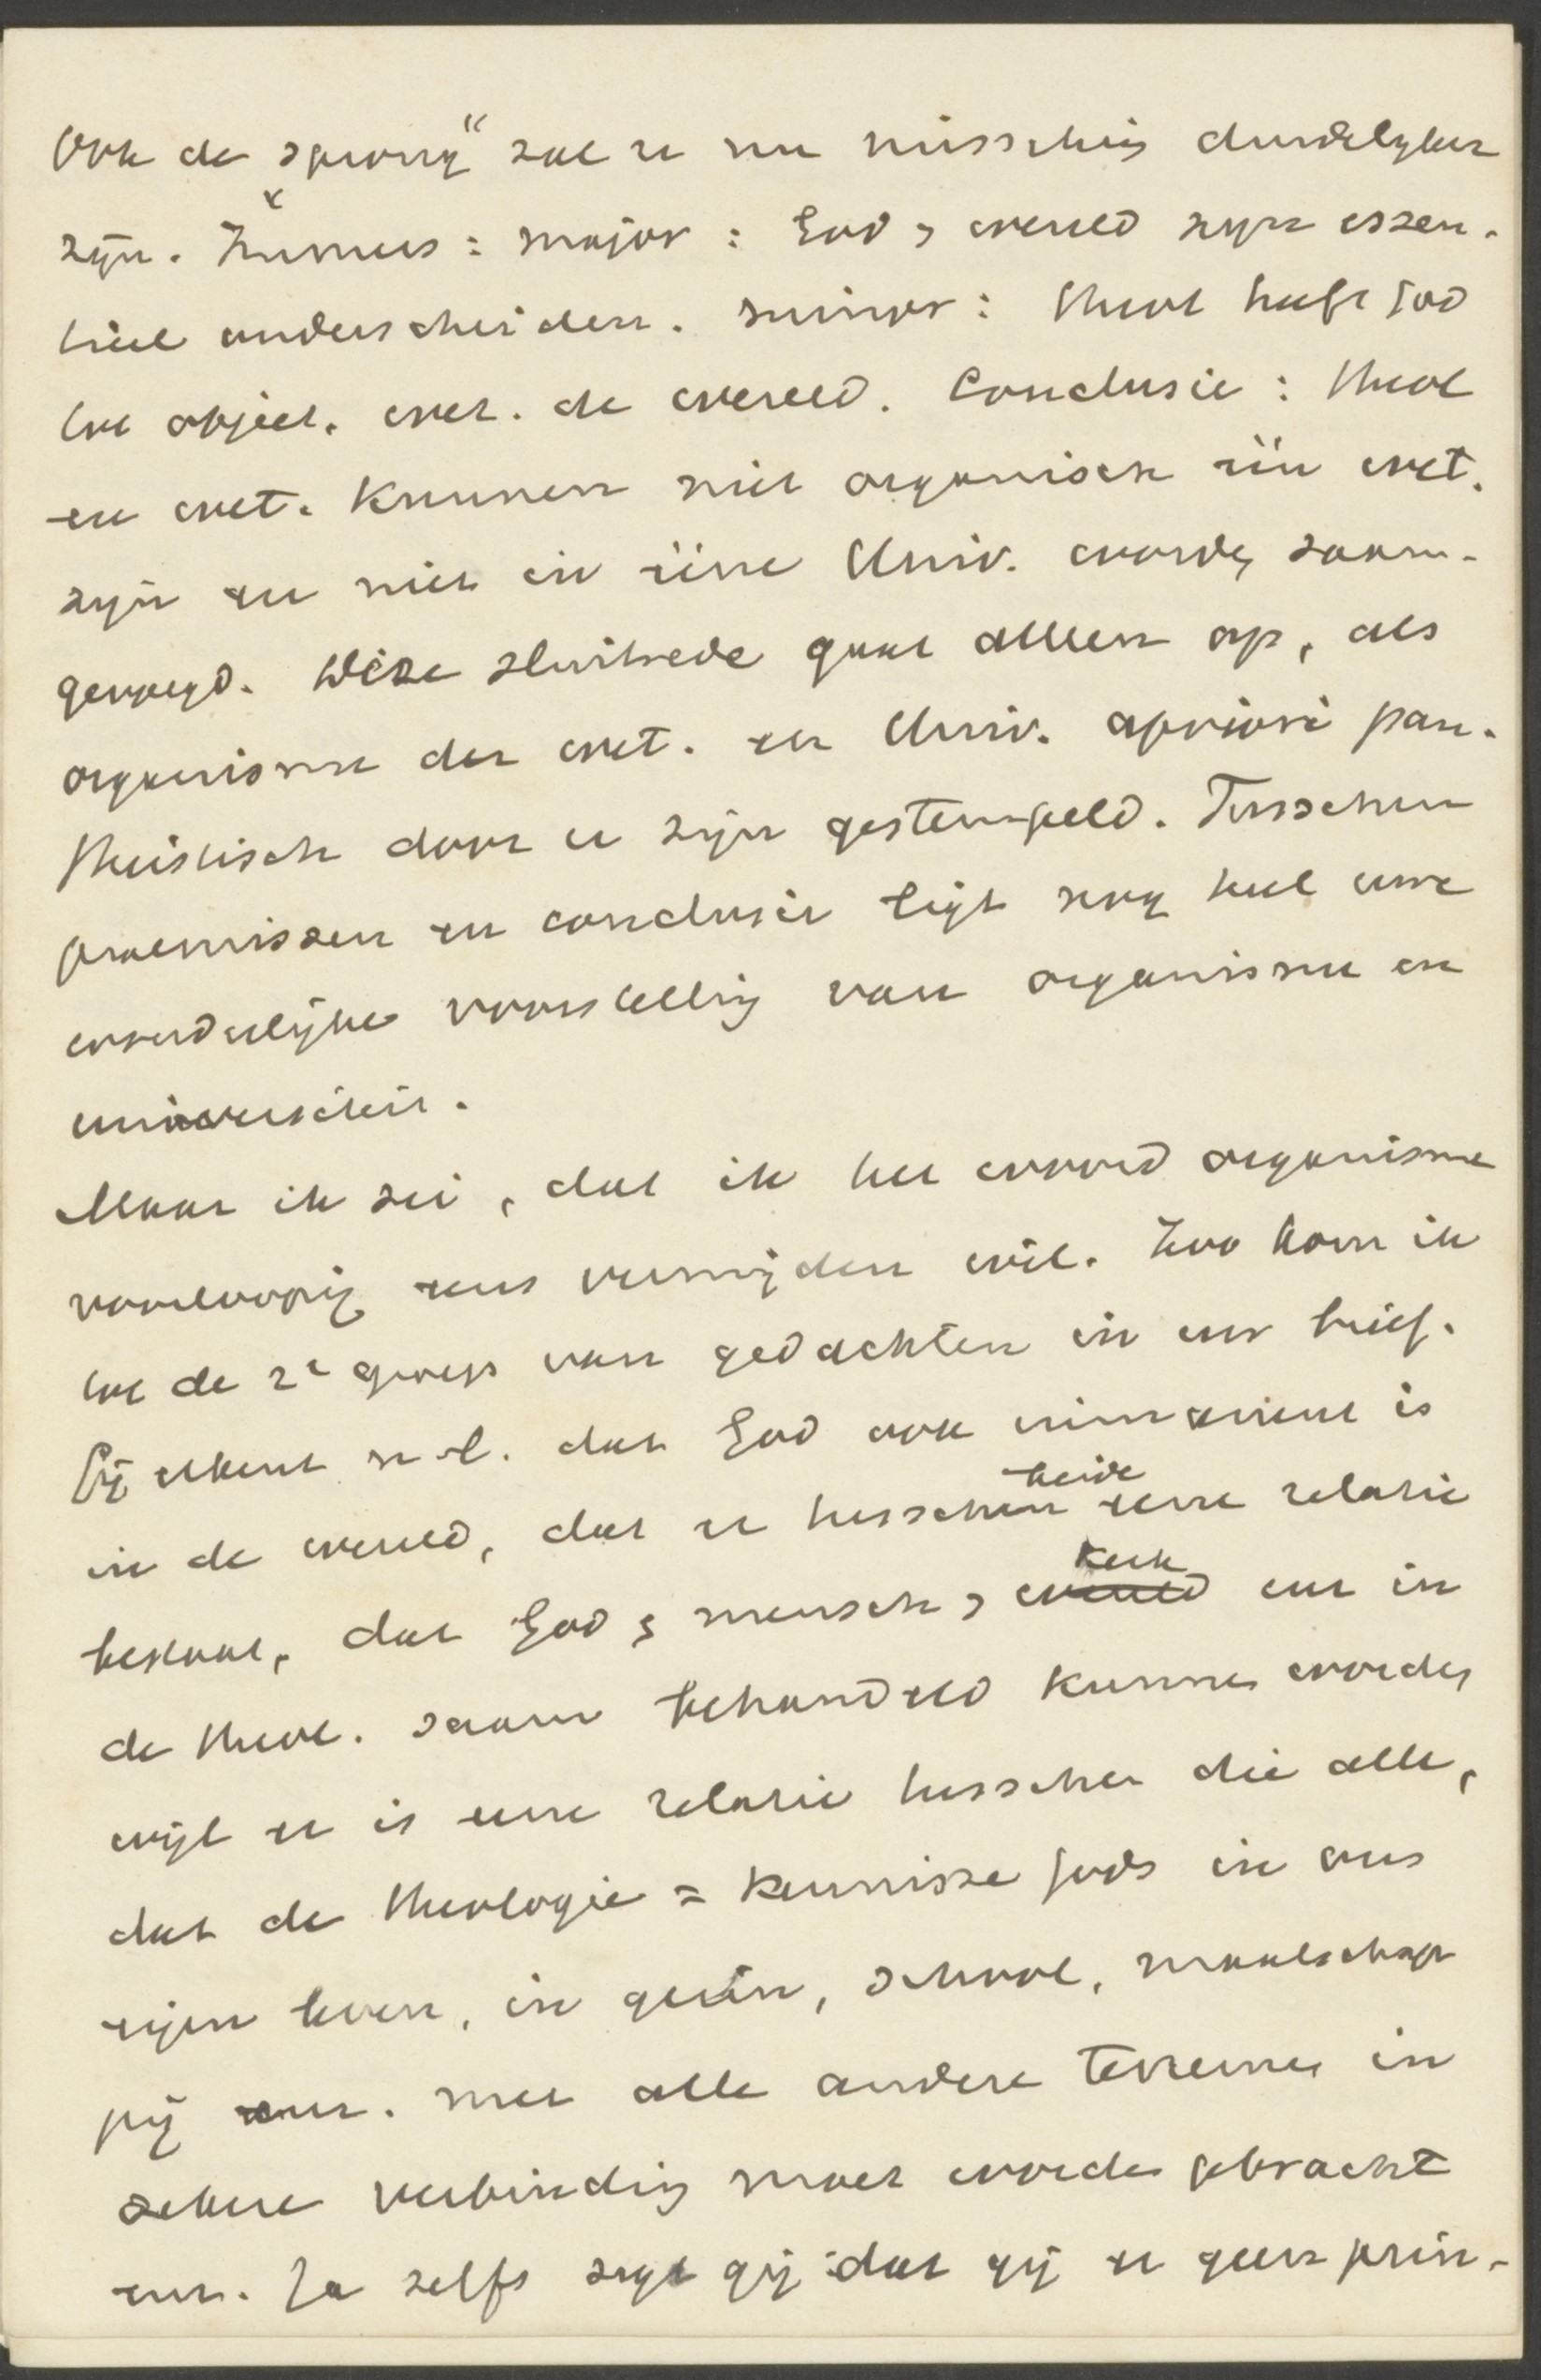 Ook de „sprong" zal u nu misschien duidelyker
zijn. Immers: major: God & wereld zyn essen-
tieel onderscheiden. minor: theol heeft God
tot object. wet. de wereld. Conclusie: theol
en wet. kunnen niet organisch één wet.
zijn en niet in ééne Univ. worden saam-
gevoegd. Deze sluitrede gaat alleen op, als
organisme der wet. en Univ. apriori pan-
theistisch door u zijn gestempeld. Tusschen
praemissen en conclusie ligt nog heel uwe
wonderlijke voorstelling van organisme en
universiteit.
Maar ik zei, dat ik het woord organisme
voorloopig eens vermijden wil. Zoo kom ik
tot de 2e groep van gedachten in uw brief.
Gij erkent n.l. dat God ook immanent is
in de wereld, dat er tusschen beide eene relatie
bestaat, dat God & mensch & wereld kerk enz in
de theol. saam behandeld kunnen worden,
wijl er is eene relatie tusschen die alle,
dat de theologie = kennisse Gods in ons
eigen leven, in gezin, school, maatschappij
enz. met alle andere terreinen in
zekere verbinding moet worden gebracht
enz. Ja zelfs zegt gij dat gij er geen prin-